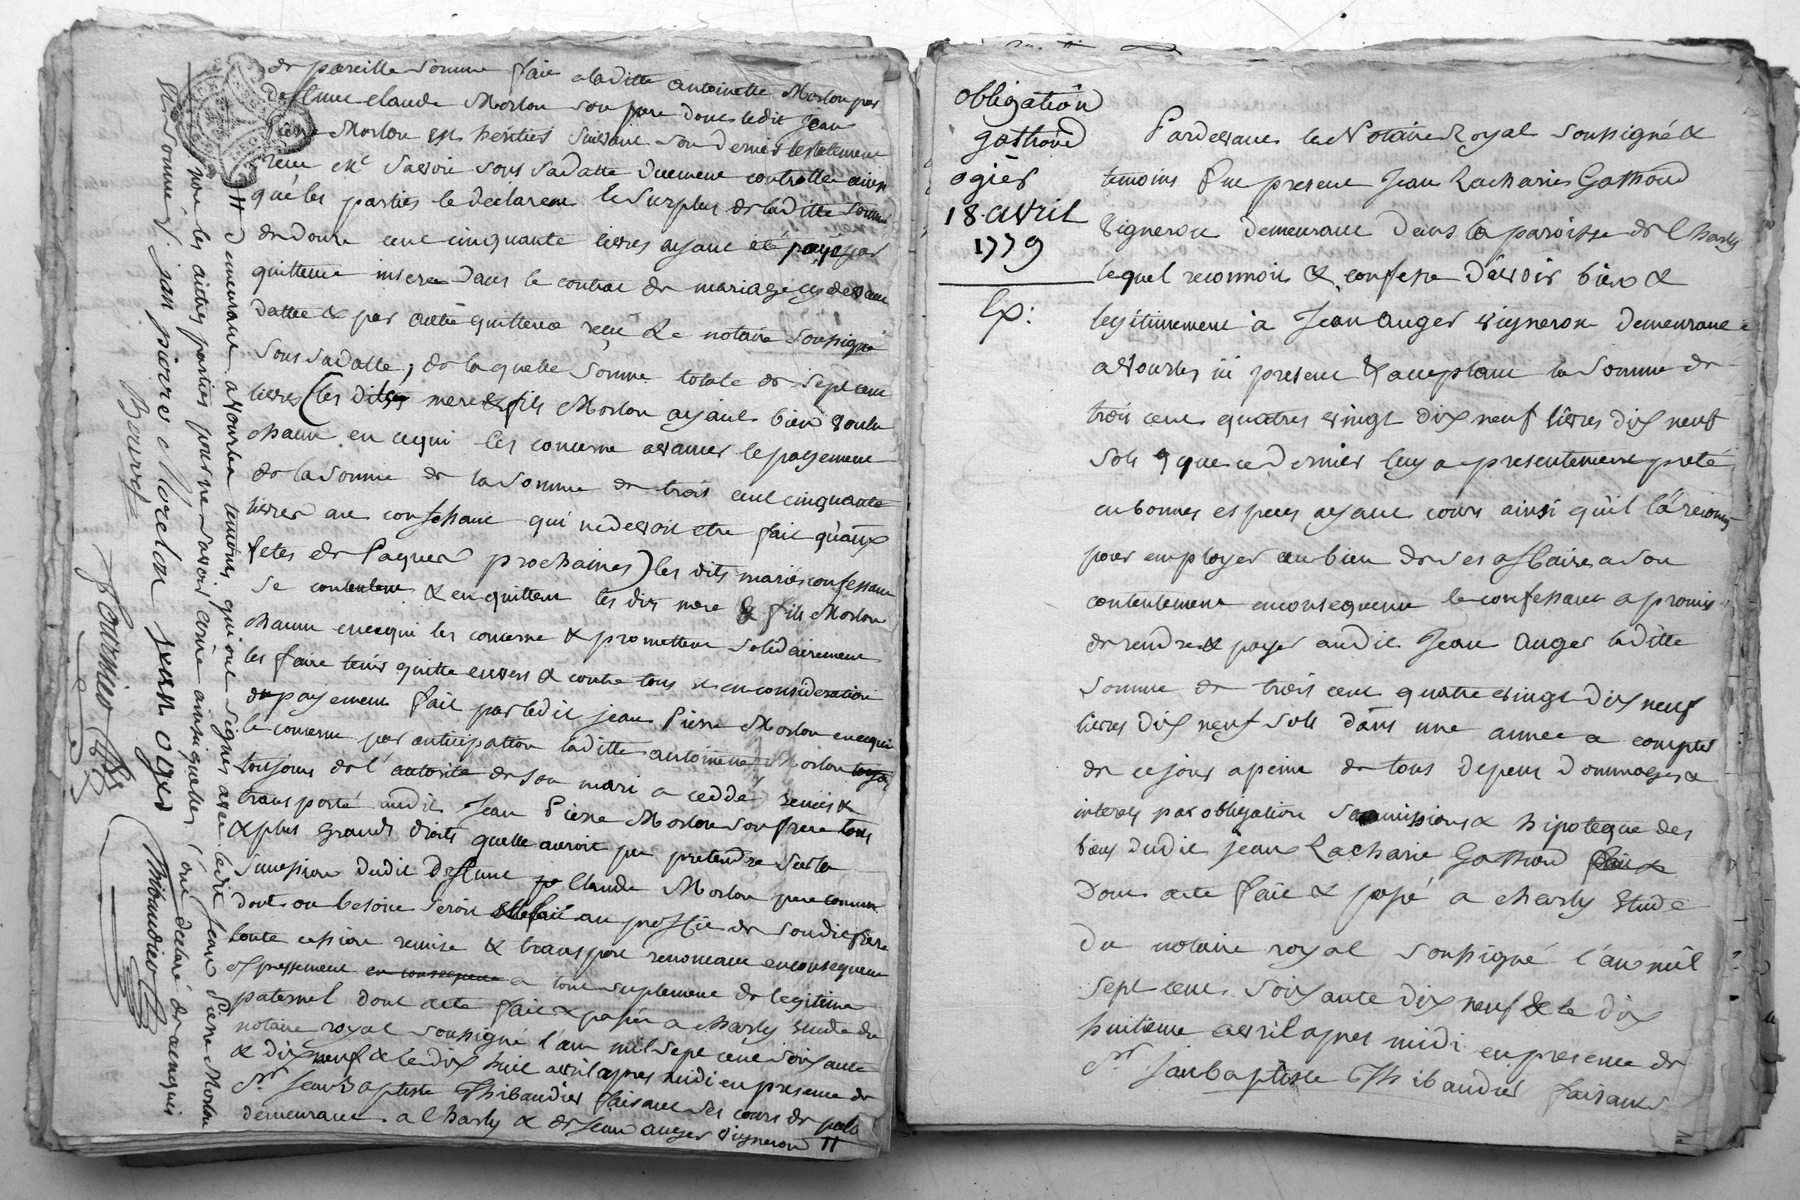 de pareille somme fait a laditte antoinette Morlon par
deffunt claude Morlon son pere dont ledit jean
Pierre Morlon est heritier suivant son dernier testament
recu Me Savoie sous sa datte duement controllé ainsi
que les parties le déclarent le surplus de laditte somme
de douze cent cinquante livres ayant été payé par
quittance inserée dans le contrat de mariage cy devant
datté & par autre quittance recu Le notaire soussigné
sous sa datte, de laquelle somme totale de sept cent
livres (les dits mere & fils Morlon ayant bien voulu
chacun en cequi les concerne avancer le payement
de la somme de la somme de trois cent cinquante
livres aux confessant qui ne devoit etre fait qu'aux
fetes de Paques prochaines) les dits mariés confessant
se contentent & en quittent les dits mere & fils Morlon
chacun encequi les concerne & promettent solidairement
les faire tenir quitte envers & contre tous & en consideration
du payement fait par ledit jean Pierre Morlon encequi
le concerne par anticipation laditte antoinette Morlon
toujours de l'autorité de son mari a ceddé remis &
transporté audit Jean Pierre Morlon son frere tous
& plus grands droits quelle auroit pu pretendre sur la
succession dudit deffunt Claude Morlon pere commun
dont au besoin seroit fait au proffit de sondit frere
toute cession remise & transport renoncant enconsequence
expressement en consequence a tout suplement de legitime
paternel dont acte fait & passé a charly etude du
notaire royal soussigné l'an mil sept cent soixante
& dix neuf & le dix huit avril apres midi en presence de
Sr Jean Baptiste Thibaudier faisant ses cours de
demeurant a Charly & de Jean auger vigneron //
// demeurant a Vourles temoins qui ont signés avec ledit jean Pierre Morlon
non les autres parties pour ne savoir ecrire ainsi quelles l'ont declaré de ce enquis
& sommés. jan pierre Morelon jean ogier Thibaudier
Bourd
Obligation
gathoud
ogier
18. avril
1779
Ex:
Pardevant le Notaire Royal soussigné &
temoins fut present Jean Zacharie Gathoud
vigneron demeurant dans la paroisse de Charly
lequel reconnoit & confesse devoir bien &
legitimement à Jean Auger vigneron demeurant
a Vourles ici present & acceptant la somme de
trois cent quatres vingt dix neuf livres dix neuf
sols que ce dernier luy a presentement preté
en bonnes especes ayant cours ainsi qu'il l'a reconnu
pour employer au bien de ses affaires a son
contentement enconsequence le confessant a promis
de rendre & payer audit Jean Auger laditte
somme de trois cent quatre vingt dix neuf
livres dix neuf sols dans une année a compter
de cejour a peine de tous depens dommages &
interets par obligation soumissions & hipoteque des
biens dudit jean Zacharie Gathoud fait &
Dont acte fait & passé a charly Etude
Du notaire royal soussigné l'an mil
sept cent soixante dix neuf & le dix
huitieme avril apres midi en presence de
Sr Jean baptiste Thibaudier faisant